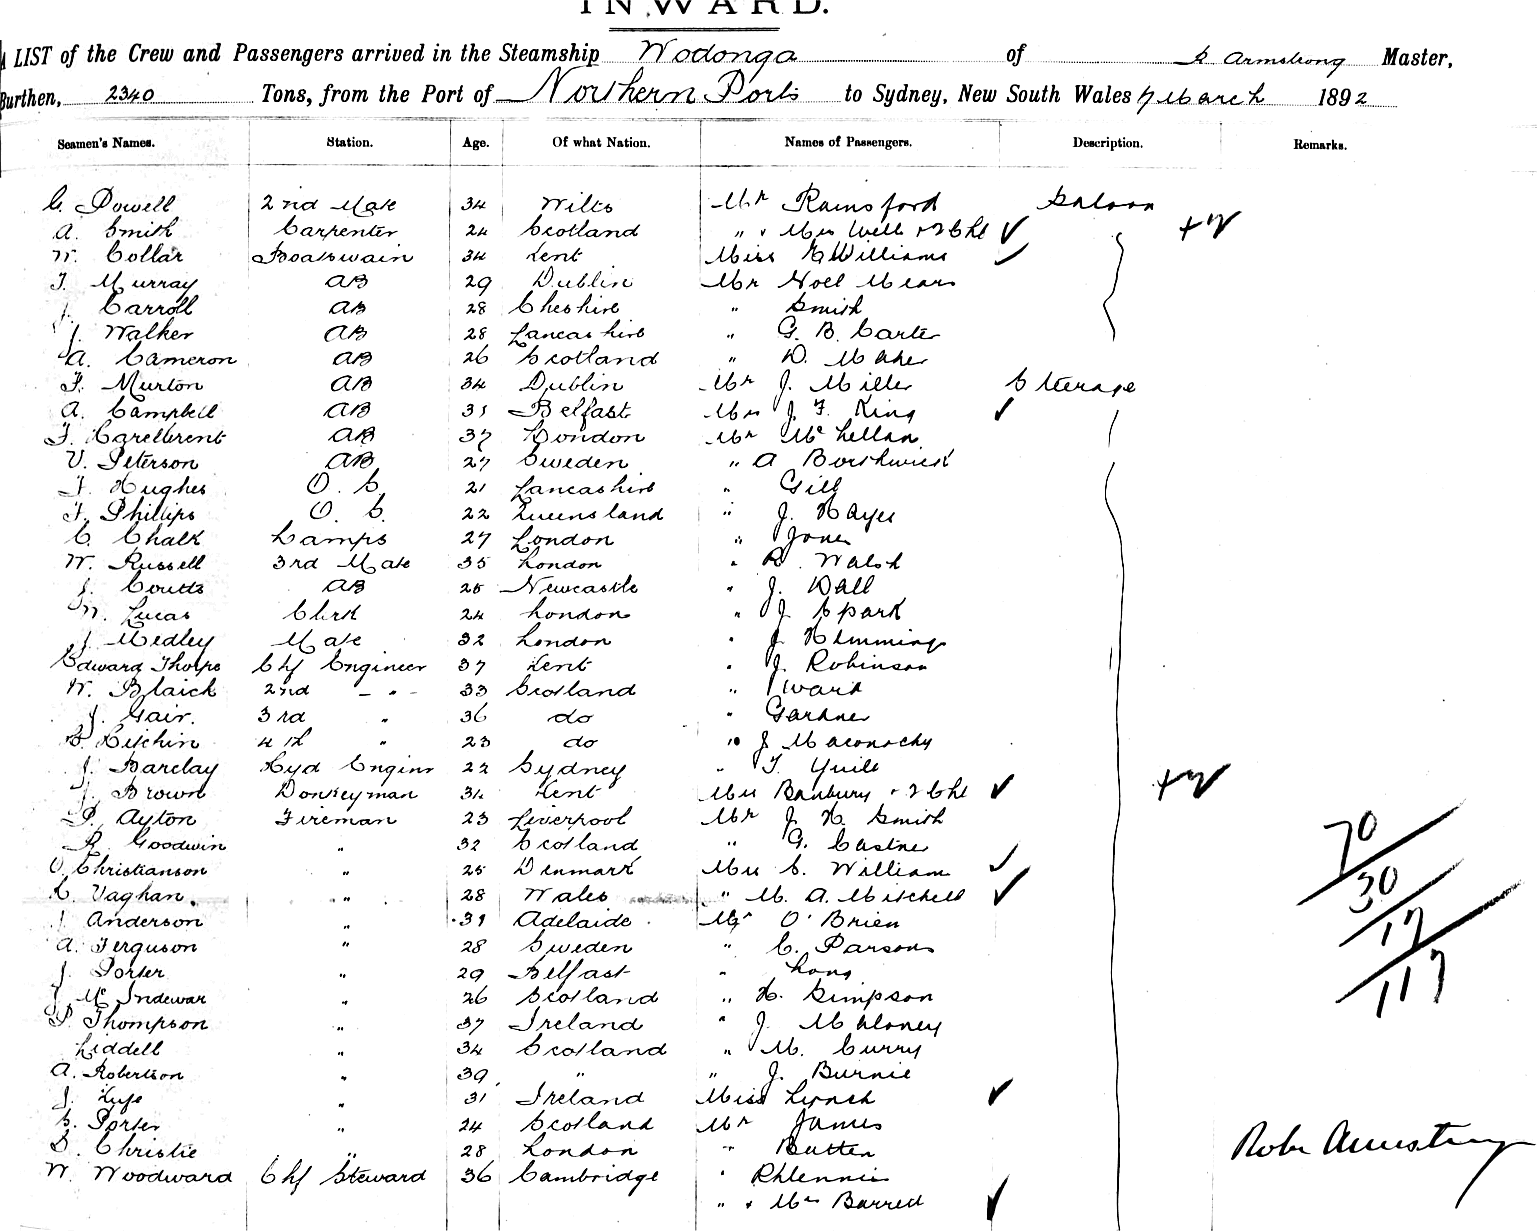 INWARD.
A LIST of the Crew and Passengers arrived in the Steamship Wodonga of R Armstrong Master,
Burthen, 2340 Tons, from the Port of Northern Ports to Sydney, New South Wales 7 March 1892
Seamen's Names. Station. Age. Of what Nation. Names of Passengers. Description. Remarks.
C. Powell 2nd Mate 34 Wilts Mr Rainsford Saloon
A. Smith Carpenter 24 Scotland " & Mrs Will & 2 Chl +2
W. Collar Boatswain 34 Kent Miss Williams
T. Murray AB 29 Dublin Mr Noel Mears
J. Carroll AB 28 Cheshire " Smith
J. Walker AB 28 Lancashire " G. B. Carter
A. Cameron AB 26 Scotland " D. Maher
F. Murton AB 34 Dublin Mr J. Miller Steerage
A. Campbell AB 31 Belfast Mrs J. F. King
AB 37 London Mr McLellan
V. Peterson AB 27 Sweden " A Borthwick
F. Hughes O. S. 21 Lancashire " Gill
F. Phillips O. S. 22 Queensland " J. Hayes
C. Chalk Lamps 27 London " Jones
W. Russell 3rd Mate 35 London " R. Walsh
J. Coutts AB 25 Newcastle " J. Dall
N. Lucas Clerk 24 London " J. Spark
J. Medley Mate 32 London " J. Hemmings
Edward Thorpe Chf Engineer 37 Kent " J. Robinson
W. Blaick 2nd - " - 33 Scotland " Ward
J. Gair. 3rd " 36 do " Gardner
4th " 23 do " J Maconachy
J. Barclay Hyd Enginr 22 Sydney " T. Quill
J. Brown Donkeyman 34 Kent Mrs Banbury & 2 Chl +2
P. Ayton Fireman 23 Liverpool Mr J. H. Smith
R. Goodwin " 32 Scotland " G. Castner
O. Christianson " 25 Denmark Mrs C. William
L. Vaghan. " 28 Wales " M. A. Mitchell
J. Anderson " 31 Adelaide Mr O'Brien
A. Ferguson " 28 Sweden " C. Parsons
J. Porter " 29 Belfast " Long
J. McIndewar " 26 Scotland " H. Simpson
P. Thompson " 37 Ireland " J. Maloney
Liddell " 34 Scotland " M. Curry
A. Robertson " 39 " " J. Burnie
J. " 31 Ireland Miss Lynch
S. Porter " 24 Scotland Mr James
D. Christie " 28 London " Batten
W. Woodward Chf Steward 36 Cambridge "
" & Mrs Barred
70
30
17
117
Robt Armstrong